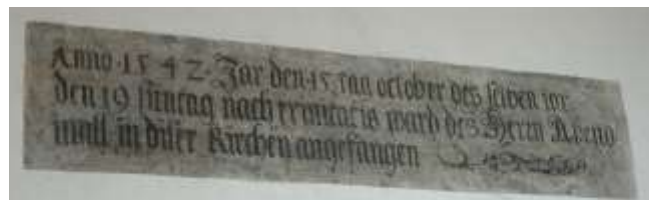 Anno · 15 4 2 · Jar den · 15 · tag october des selben iar
den 19 suntag nach trinitatis ward des Herrn Abend
mall in diser Kirchen angefangen